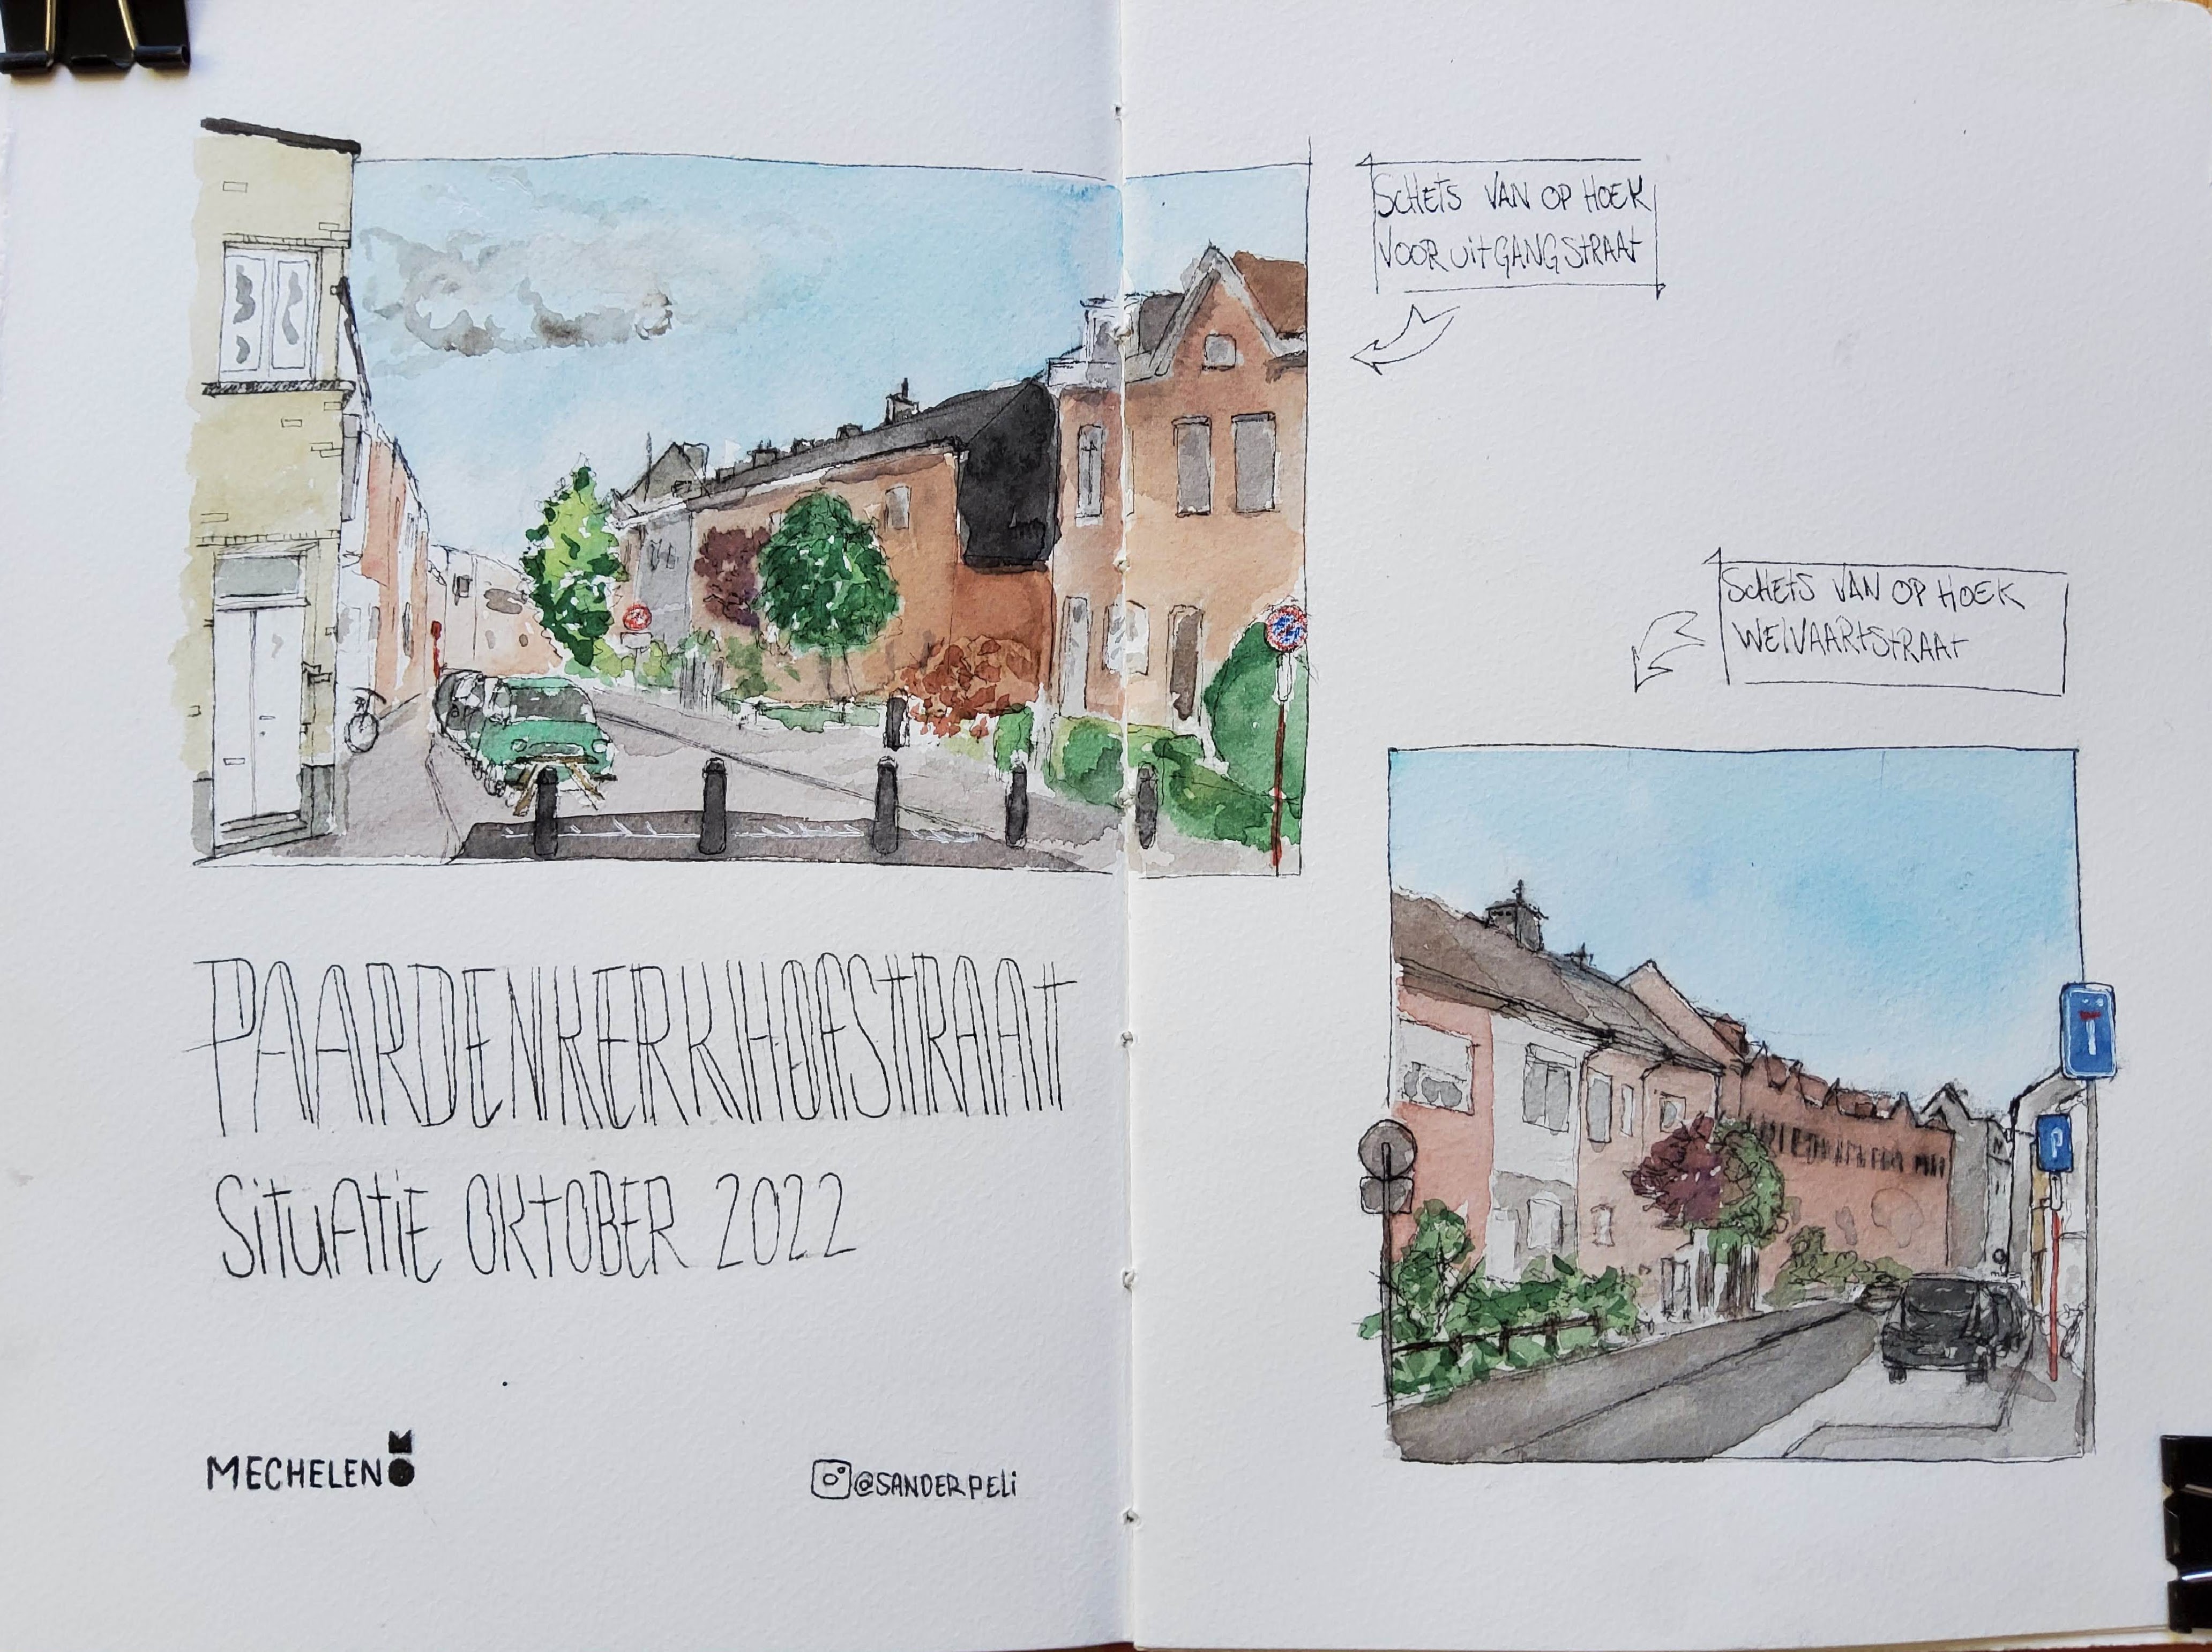 SCHETS VAN OP HOEK
VOORUITGANGSTRAAT
SCHETS VAN OP HOEK
WELVAARTSTRAAT
PAARDENKERKHOFSTRAAT
SITUATIE OKTOBER 2022
MECHELEN
@SANDERPELI
P